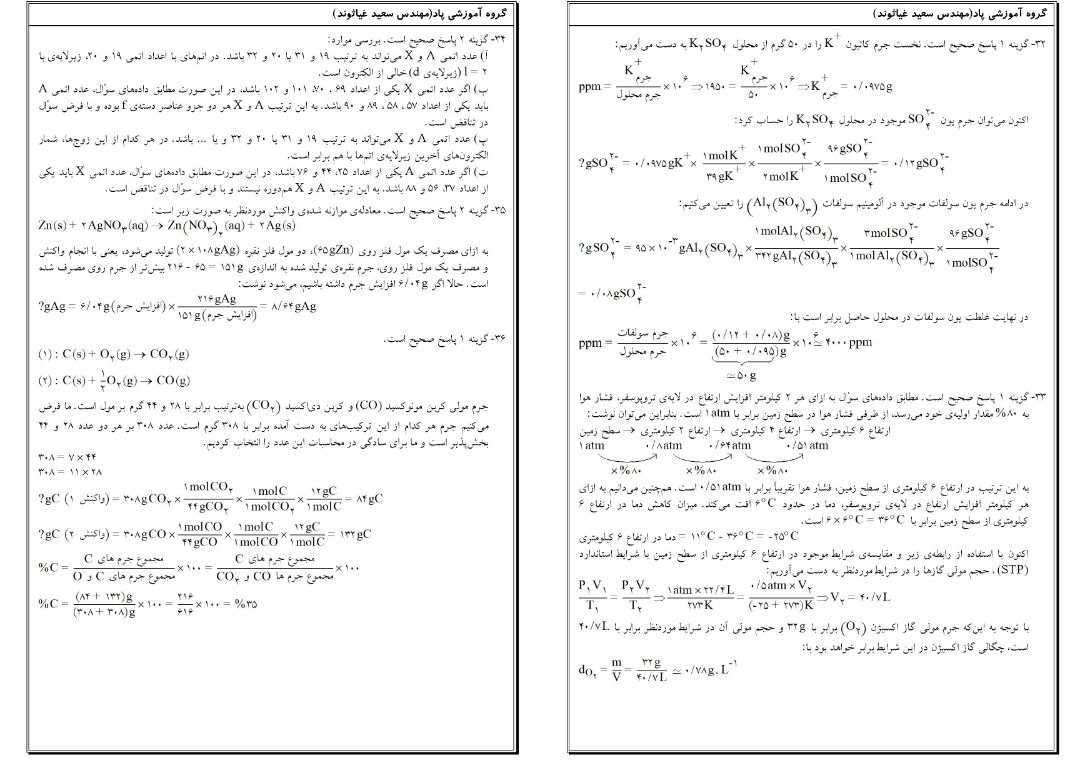 گروه آموزشی پاد(مهندس سعید غیاثوند)
۳۲- گزینه ۱ پاسخ صحیح است. نخست جرم کاتیون K+ را در ۵۰ گرم از محلول K۲SO۴ به دست می‌آوریم:
ppm = جرم K+ / جرم محلول × ۱۰^۶ ⇒ ۱۹۵۰ = جرم K+ / ۵۰ × ۱۰^۶ ⇒ جرم K+ = ۰/۰۹۷۵g
اکنون می‌توان جرم یون SO۴^۲- موجود در محلول K۲SO۴ را حساب کرد:
?gSO۴^۲- = ۰/۰۹۷۵gK+ × ۱molK+ / ۳۹gK+ × ۱molSO۴^۲- / ۲molK+ × ۹۶gSO۴^۲- / ۱molSO۴^۲- = ۰/۱۲gSO۴^۲-
در ادامه جرم یون سولفات موجود در آلومینیم سولفات (Al۲(SO۴)۳) را تعیین می‌کنیم:
?gSO۴^۲- = ۹۵×۱۰^-۳ gAl۲(SO۴)۳ × ۱molAl۲(SO۴)۳ / ۳۴۲gAl۲(SO۴)۳ × ۳molSO۴^۲- / ۱molAl۲(SO۴)۳ × ۹۶gSO۴^۲- / ۱molSO۴^۲-
= ۰/۰۸gSO۴^۲-
در نهایت غلظت یون سولفات در محلول حاصل برابر است با:
ppm = جرم سولفات / جرم محلول × ۱۰^۶ = (۰/۱۲ + ۰/۰۸)g / (۵۰ + ۰/۰۹۵)g × ۱۰^۶ ≃ ۴۰۰۰ppm
≃ ۵۰g
۳۳- گزینه ۱ پاسخ صحیح است. مطابق داده‌های سوال به ازای هر ۲ کیلومتر افزایش ارتفاع در لایه‌ی تروپوسفر، فشار هوا
به ۸۰% مقدار اولیه‌ی خود می‌رسد، از طرفی فشار هوا در سطح زمین برابر با ۱atm است. بنابراین می‌توان نوشت:
ارتفاع ۶ کیلومتری → ارتفاع ۴ کیلومتری → ارتفاع ۲ کیلومتری → سطح زمین
۱atm ۰/۸atm ۰/۶۴atm ۰/۵۱atm
×%۸۰ ×%۸۰ ×%۸۰
به این ترتیب در ارتفاع ۶ کیلومتری از سطح زمین، فشار هوا تقریباً برابر با ۰/۵۱atm است. هم‌چنین می‌دانیم به ازای
هر کیلومتر افزایش ارتفاع در لایه‌ی تروپوسفر، دما در حدود ۶°C افت می‌کند. میزان کاهش دما در ارتفاع ۶
کیلومتری از سطح زمین برابر با ۶×۶°C = ۳۶°C است.
دما در ارتفاع ۶ کیلومتری = ۱۱°C - ۳۶°C = -۲۵°C
اکنون با استفاده از رابطه‌ی زیر و مقایسه‌ی شرایط موجود در ارتفاع ۶ کیلومتری از سطح زمین با شرایط استاندارد
(STP)، حجم مولی گازها را در شرایط موردنظر به دست می‌آوریم:
P۱V۱ / T۱ = P۲V۲ / T۲ ⇒ ۱atm×۲۲/۴L / ۲۷۳K = ۰/۵atm×V۲ / (-۲۵ + ۲۷۳)K ⇒ V۲ = ۴۰/۷L
با توجه به این‌که جرم مولی گاز اکسیژن (O۲) برابر با ۳۲g و حجم مولی آن در شرایط موردنظر برابر با ۴۰/۷L
است، چگالی گاز اکسیژن در این شرایط برابر خواهد بود با:
dO۲ = m / V = ۳۲g / ۴۰/۷L ≃ ۰/۷۸g.L^-۱
گروه آموزشی پاد(مهندس سعید غیاثوند)
۳۴- گزینه ۲ پاسخ صحیح است. بررسی موارد:
آ) عدد اتمی A و X می‌تواند به ترتیب ۱۹ و ۳۱ یا ۲۰ و ۳۲ باشد. در اتم‌های با اعداد اتمی ۱۹ و ۲۰، زیرلایه‌ی با
l = ۲ (زیرلایه‌ی d) خالی از الکترون است.
ب) اگر عدد اتمی X یکی از اعداد ۶۹ ، ۷۰، ۱۰۱ و ۱۰۲ باشد، در این صورت مطابق داده‌های سوال، عدد اتمی A
باید یکی از اعداد ۵۷ ، ۵۸ ، ۸۹ و ۹۰ باشد. به این ترتیب A و X هر دو جزو عناصر دسته‌ی f بوده و با فرض سوال
در تناقض است.
پ) عدد اتمی A و X می‌تواند به ترتیب ۱۹ و ۳۱ یا ۲۰ و ۳۲ و یا ... باشد. در هر کدام از این زوج‌ها، شمار
الکترون‌های آخرین زیرلایه‌ی اتم‌ها با هم برابر است.
ت) اگر عدد اتمی A یکی از اعداد ۲۵، ۴۴ و ۷۶ باشد، در این صورت مطابق داده‌های سوال، عدد اتمی X باید یکی
از اعداد ۳۷، ۵۶ و ۸۸ باشد. به این ترتیب A و X هم‌دوره نیستند و با فرض سوال در تناقض است.
۳۵- گزینه ۲ پاسخ صحیح است. معادله‌ی موازنه شده‌ی واکنش موردنظر به صورت زیر است:
Zn(s) + ۲AgNO۳(aq) → Zn(NO۳)۲(aq) + ۲Ag(s)
به ازای مصرف یک مول فلز روی (۶۵gZn)، دو مول فلز نقره (۲×۱۰۸gAg) تولید می‌شود، یعنی با انجام واکنش
و مصرف یک مول فلز روی، جرم نقره‌ی تولید شده به اندازه‌ی ۲۱۶ - ۶۵ = ۱۵۱g بیش‌تر از جرم روی مصرف شده
است. حالا اگر ۶/۰۴g افزایش جرم داشته باشیم، می‌شود نوشت:
?gAg = ۶/۰۴g(افزایش جرم) × ۲۱۶gAg / ۱۵۱g(افزایش جرم) = ۸/۶۴gAg
۳۶- گزینه ۱ پاسخ صحیح است.
(۱) : C(s) + O۲(g) → CO۲(g)
(۲) : C(s) + ۱/۲O۲(g) → CO(g)
جرم مولی کربن مونوکسید (CO) و کربن دی‌اکسید (CO۲) به‌ترتیب برابر با ۲۸ و ۴۴ گرم بر مول است. ما فرض
می‌کنیم جرم هر کدام از این ترکیب‌های به دست آمده برابر با ۳۰۸ گرم است. عدد ۳۰۸ بر هر دو عدد ۲۸ و ۴۴
بخش‌پذیر است و ما برای سادگی در محاسبات این عدد را انتخاب کردیم.
۳۰۸ = ۷×۴۴
۳۰۸ = ۱۱×۲۸
?gC (واکنش ۱) = ۳۰۸gCO۲ × ۱molCO۲ / ۴۴gCO۲ × ۱molC / ۱molCO۲ × ۱۲gC / ۱molC = ۸۴gC
?gC (واکنش ۲) = ۳۰۸gCO × ۱molCO / ۴۴gCO × ۱molC / ۱molCO × ۱۲gC / ۱molC = ۱۳۲gC
%C = مجموع جرم های C / مجموع جرم های C و O × ۱۰۰ = مجموع جرم های C / مجموع جرم ها CO و CO۲ × ۱۰۰
%C = (۸۴ + ۱۳۲)g / (۳۰۸ + ۳۰۸)g × ۱۰۰ = ۲۱۶ / ۶۱۶ × ۱۰۰ = %۳۵